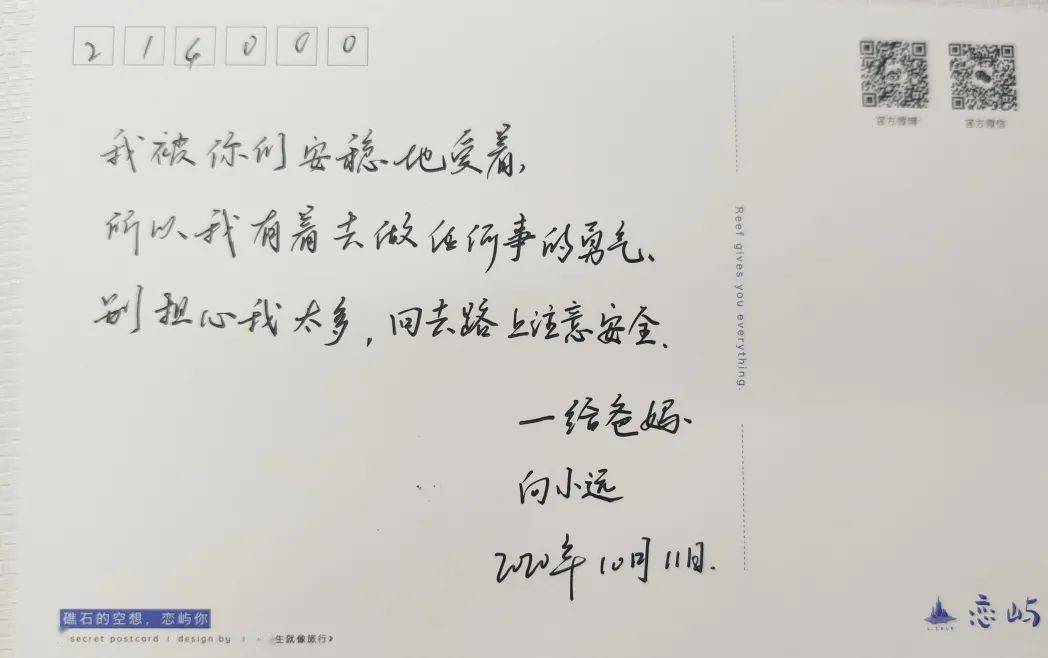 214000
官方微博
官方微信
我被你们安稳地爱着,
所以我有着去做任何事的勇气、
别担心我太多,回去路上注意安全.
一给爸妈、
向小远
2020年10月11日.
Reef gives you everything.
礁石的空想,恋屿你
secret postcard | design by
生就像旅行》
恋屿